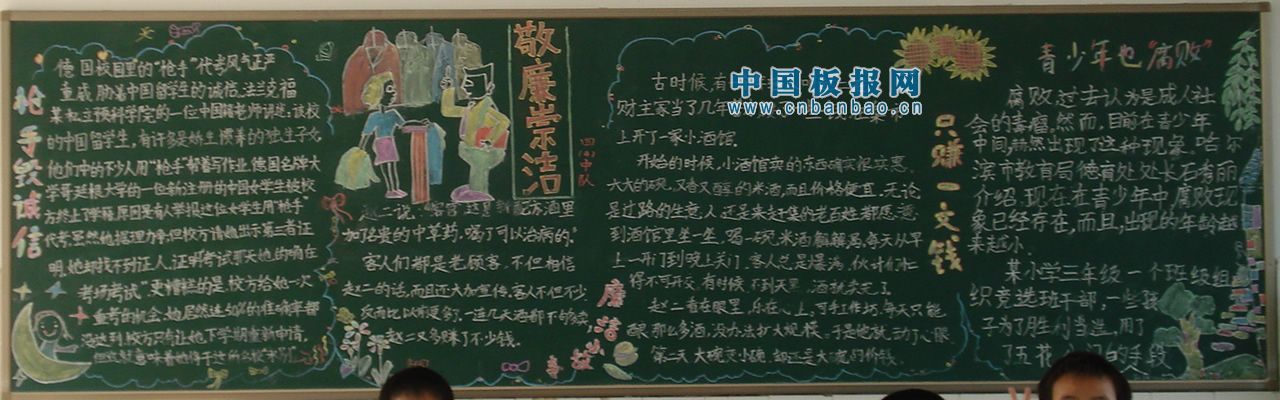 枪手毁诚信
德国校园里的“枪手”代考风气正严
重威胁着中国留学生的诚信。法兰克福
某私立预科学院的一位中国籍老师讲述:该校
的中国留学生,有许多是娇生惯养的独生子女,
他们中的不少人用“枪手”帮着写作业。德国名牌大
学哥廷根大学的一位新注册的中国女学生被校
方终止了学籍,原因是有人举报这位女学生用“枪手”
代考。虽然她据理力争,但校方请她出示第三者证
明,她却找不到证人,证明考试那天她的确在
考场考试”。更糟糕的是,校方给她一次
重考的机会,她居然连50%的准确率都
没达到,校方只有让她下学期重新申请,
敬廉崇洁
四(1)中队
赵二说:“客官,这是
加了名贵的中草药,喝了可以治病的。”
客人们都是老顾客,不但相信
赵二的话,而且还大加宣传,客人不但不少,
反而比以前更多,一连几天酒都不够卖,
赵二又多赚了不少钱。
廉洁
故事
中国板报网
www.cnbanbao.cn
只赚一文钱
古时候,有
财主家当了几年
上开了一家小酒馆。
开始的时候,小酒馆卖的东西确实很实惠,
大大的碗,又香又醇的米酒,而且价格便宜,无论
是过路的生意人还是来赶集的老百姓都愿意
到酒馆里坐一坐,喝一碗米酒解解渴,每天从早
上一开门到晚上关门,客人总是爆满,伙计们忙
得不可开交,有时候不到天黑,酒就卖完了。
赵二看在眼里,乐在心上,可手工作坊,每天只能
酿那么多酒,没办法扩大规模,于是他就动了心眼
第二天,大碗变小碗,却还是大碗的价钱
青少年也“腐败”
腐败,过去认为是成人社
会的毒瘤,然而,目前在青少年
中间赫然出现了这种现象。哈尔
滨市教育局德育处处长石秀丽
介绍,现在在青少年中腐败现
象已经存在,而且,出现的年龄越
来越小。
某小学三年级一个班级组
织竞选班干部,一些孩
子为了胜利当选,用了
了五花八门的手段